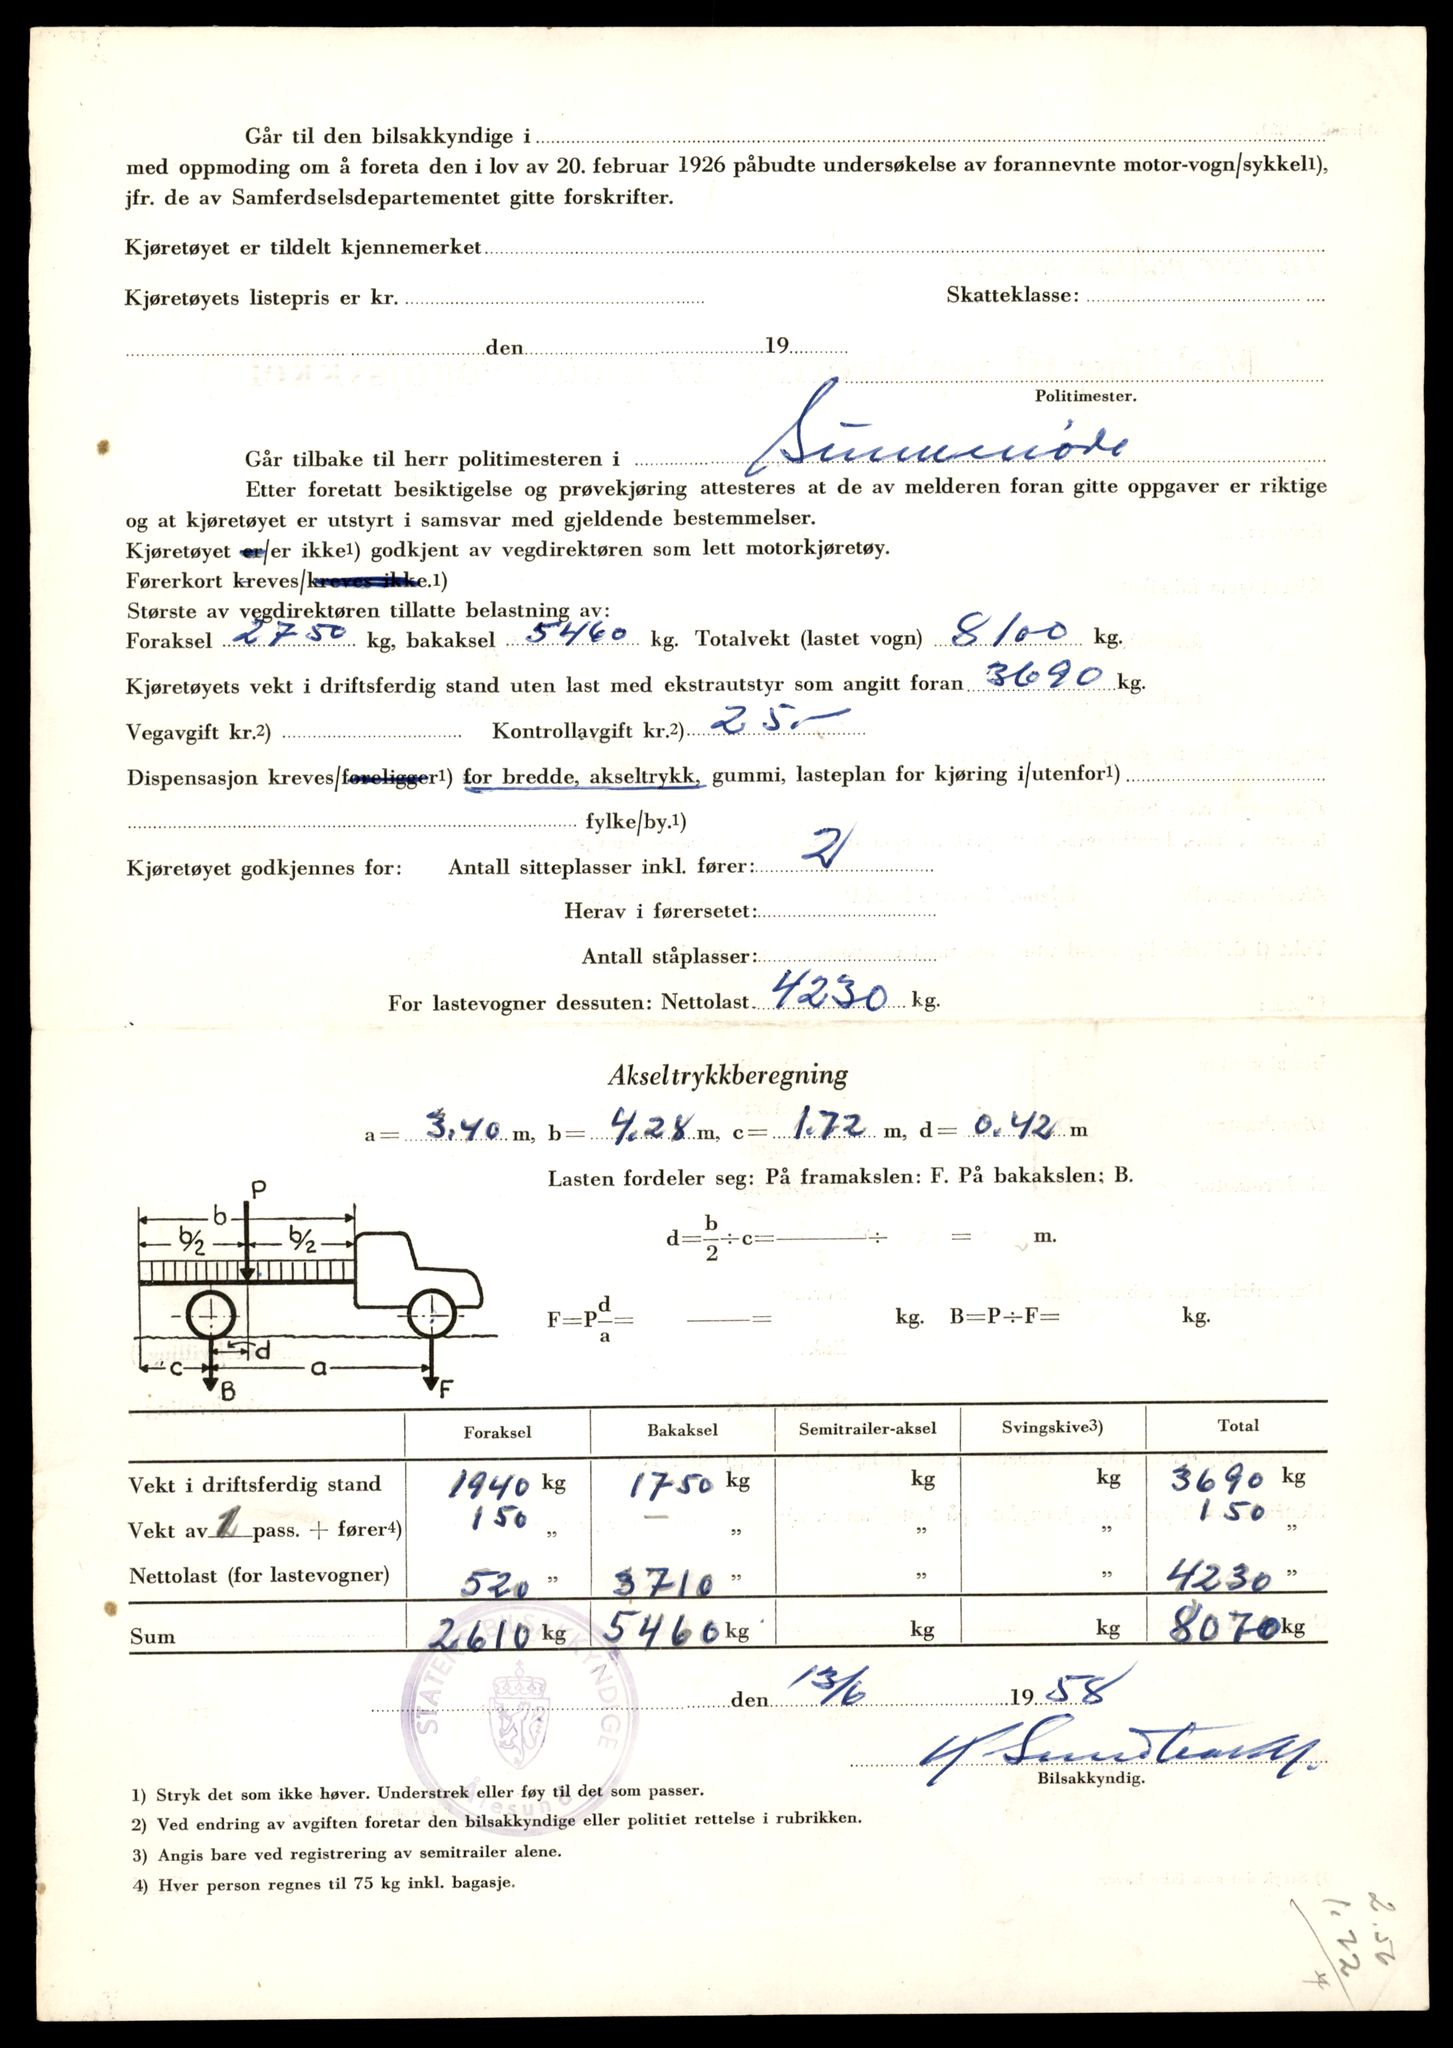 Går til den bilsakkyndige i
med oppmoding om å foreta den i lov av 20. februar 1926 påbudte undersøkelse av forannevnte motor-vogn/sykkel1),
jfr. de av Samferdselsdepartementet gitte forskrifter.
Kjøretøyet er tildelt kjennemerket
Kjøretøyets listepris er kr. Skatteklasse:
den 19
Politimester.
Går tilbake til herr politimesteren i Sunnmøre
Etter foretatt besiktigelse og prøvekjøring attesteres at de av melderen foran gitte oppgaver er riktige
og at kjøretøyet er utstyrt i samsvar med gjeldende bestemmelser.
Kjøretøyet er/er ikke1) godkjent av vegdirektøren som lett motorkjøretøy.
Førerkort kreves/kreves ikke.1)
Største av vegdirektøren tillatte belastning av:
Foraksel 2750 kg, bakaksel 5460 kg. Totalvekt (lastet vogn) 8100 kg.
Kjøretøyets vekt i driftsferdig stand uten last med ekstrautstyr som angitt foran 3690 kg.
Vegavgift kr.2) Kontrollavgift kr.2) 25.-
Dispensasjon kreves/foreligger1) for bredde, akseltrykk, gummi, lasteplan for kjøring i/utenfor1)
fylke/by.1)
Kjøretøyet godkjennes for: Antall sitteplasser inkl. fører: 2
Herav i førersetet:
Antall ståplasser:
For lastevogner dessuten: Nettolast 4230 kg.
Akseltrykkberegning
a = 3.40 m, b = 4.28 m, c = 1.72 m, d = 0.42 m
Lasten fordeler seg: På framakslen: F. På bakakslen; B.
P
b
b/2 b/2
d = b/2 ÷ c = ——— ÷ = m.
F = P d/a = ——— = kg. B = P ÷ F = kg.
d
c a
B F
Foraksel Bakaksel Semitrailer-aksel Svingskive3) Total
Vekt i driftsferdig stand 1940 kg 1750 kg kg kg 3690 kg
Vekt av 1 pass. + fører4) 150 „ — „ „ „ 150 „
Nettolast (for lastevogner) 520 „ 3710 „ „ „ 4230 „
Sum 2610 kg 5460 kg kg kg 8070 kg
STATENS BILSAKKYNDIGE
Ålesund
den 13/6 1958
Bilsakkyndig.
1) Stryk det som ikke høver. Understrek eller føy til det som passer.
2) Ved endring av avgiften foretar den bilsakkyndige eller politiet rettelse i rubrikken.
3) Angis bare ved registrering av semitrailer alene.
4) Hver person regnes til 75 kg inkl. bagasje.
2.56
1.22